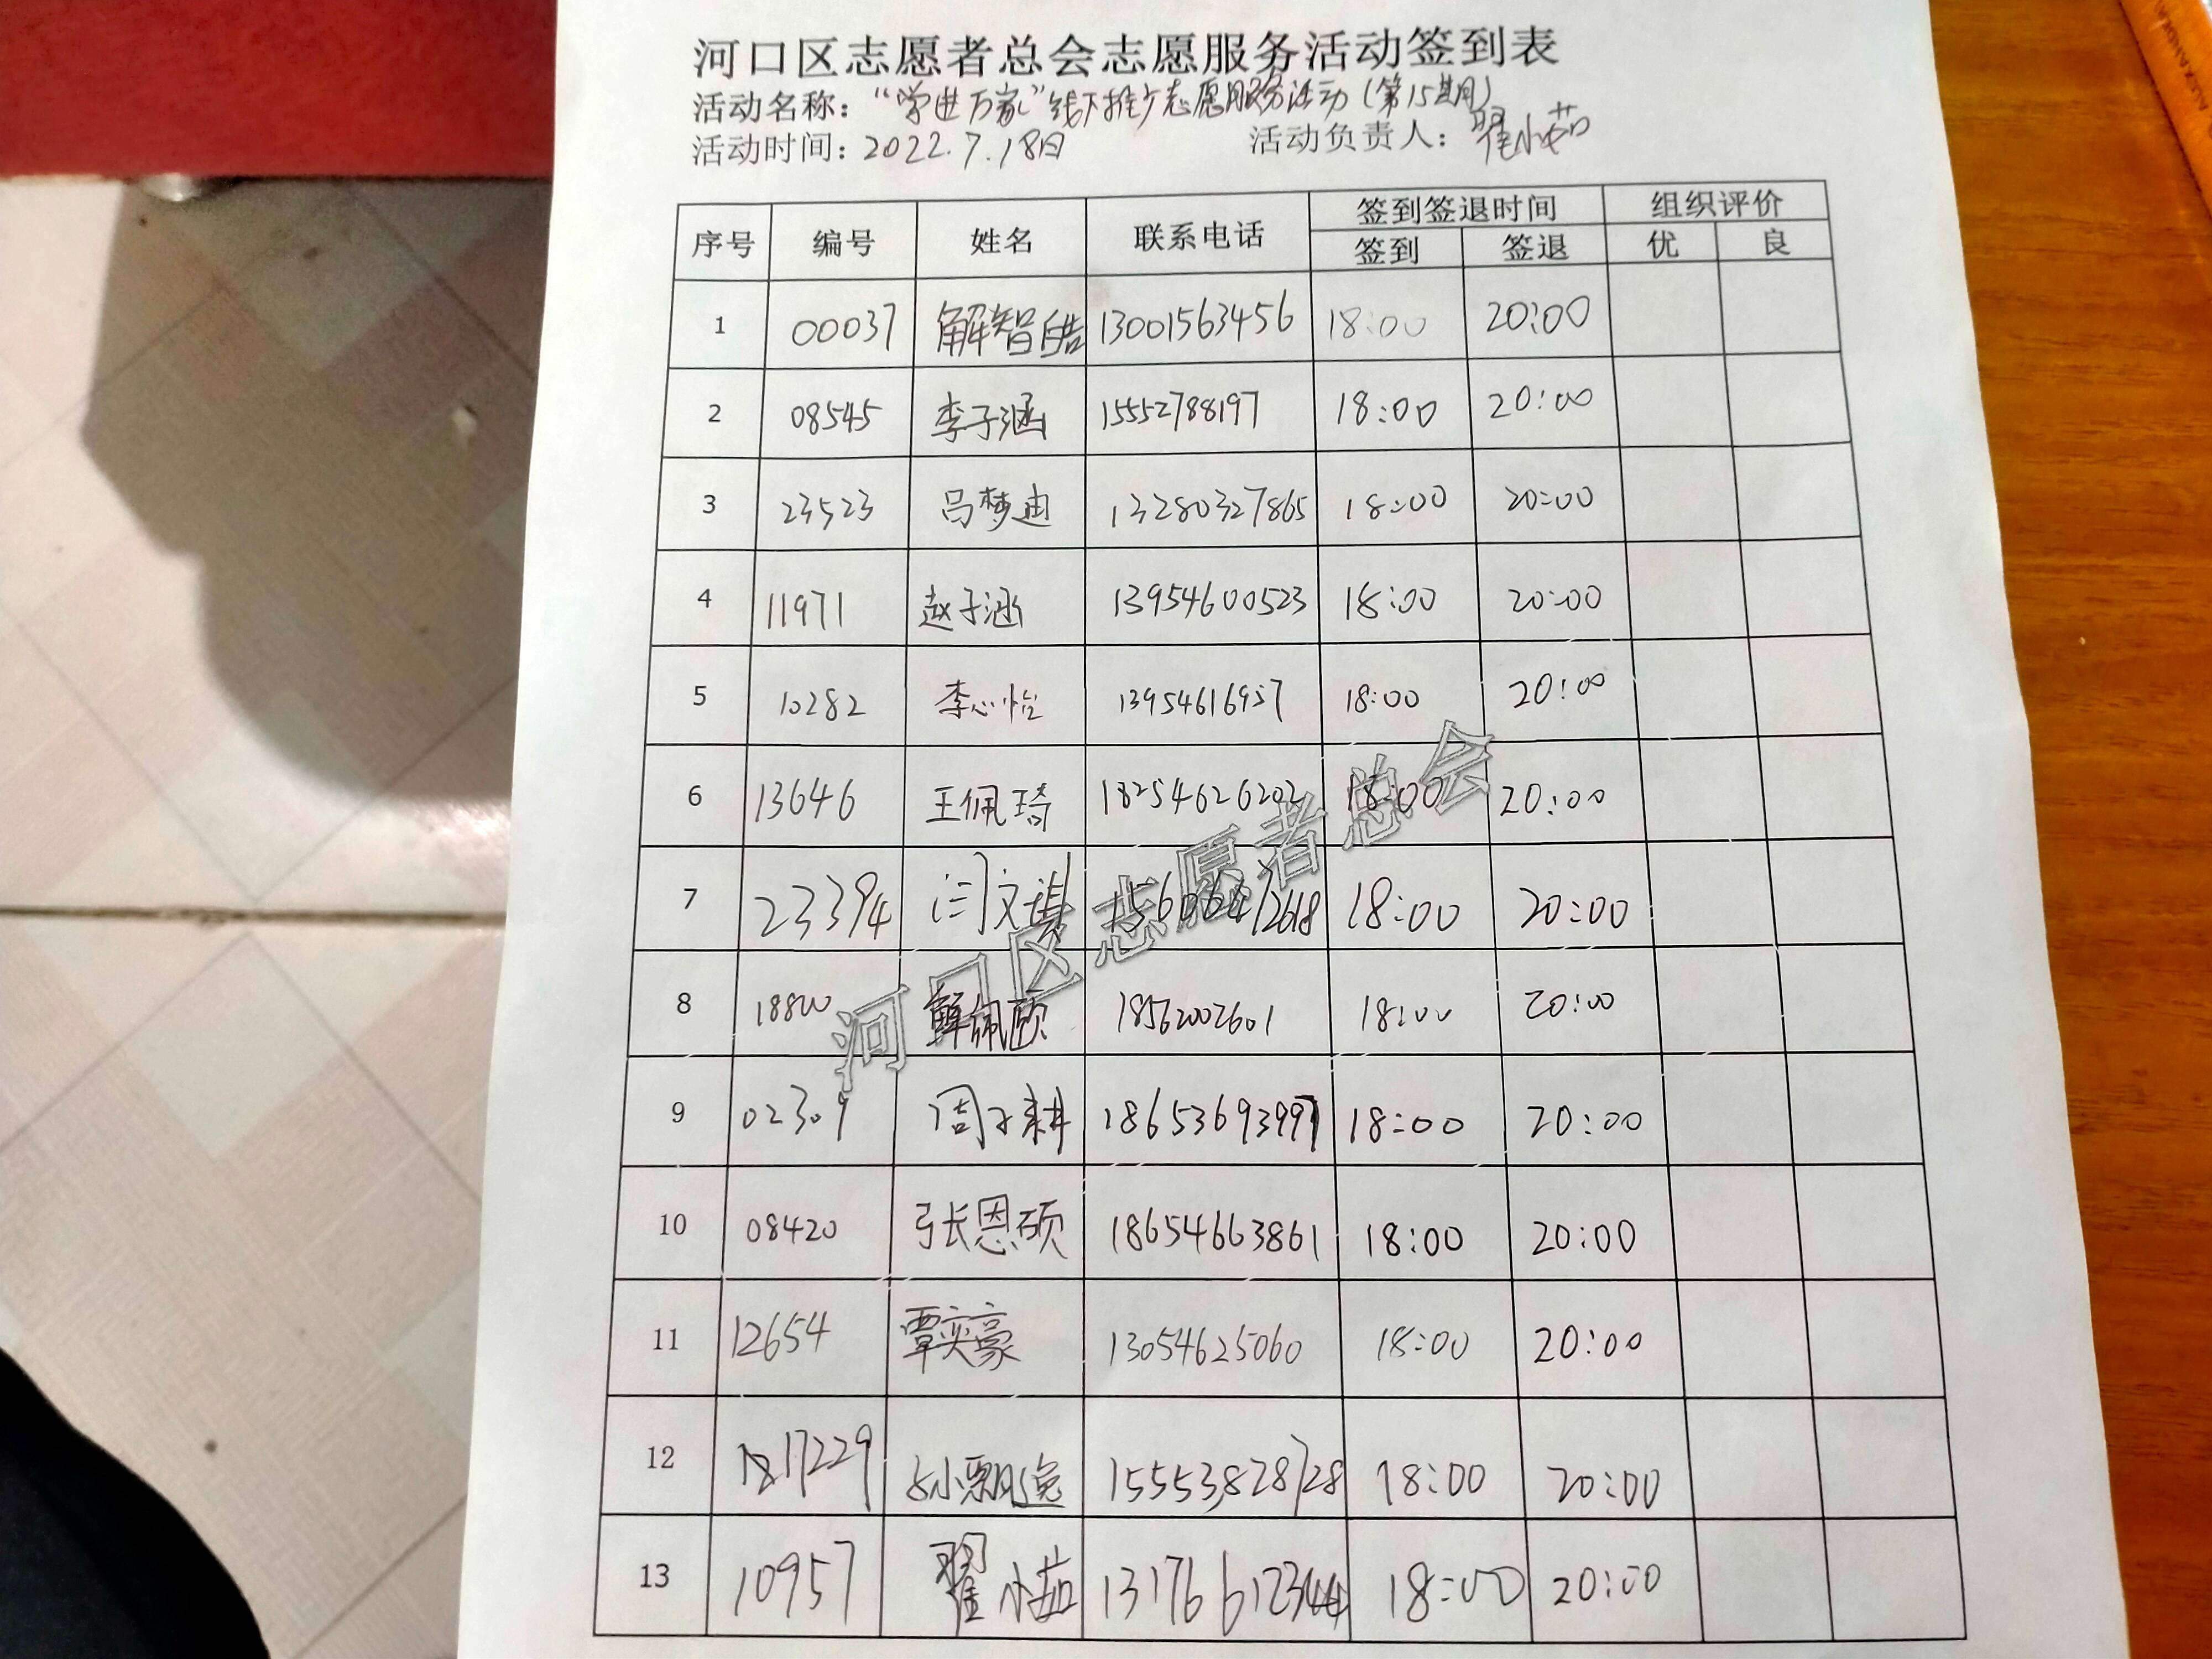 河口区志愿者总会志愿服务活动签到表
活动名称：“学进万家”线下推广志愿服务活动（第15期）
活动时间：2022.7.18日 活动负责人：翟小茹
序号 编号 姓名 联系电话 签到签退时间 组织评价
签到 签退 优 良
1 00037 解智皓 13001563456 18:00 20:00
2 08545 李子涵 15552788197 18:00 20:00
3 23523 吕梦迪 13280327865 18:00 20:00
4 11971 赵子涵 13954600523 18:00 20:00
5 10282 李心怡 13954616957 18:00 20:00
6 13646 王佩琦 18254626202 18:00 20:00
7 23394 闫文 18:00 20:00
8 18800 解佩颐 18562002601 18:00 20:00
9 02309 周子耕 18653693997 18:00 20:00
10 08420 张恩硕 18654663861 18:00 20:00
11 12654 覃奕豪 13054625060 18:00 20:00
12 17229 15553828728 18:00 20:00
13 10957 翟小茹 13176612344 18:00 20:00
河口区志愿者总会